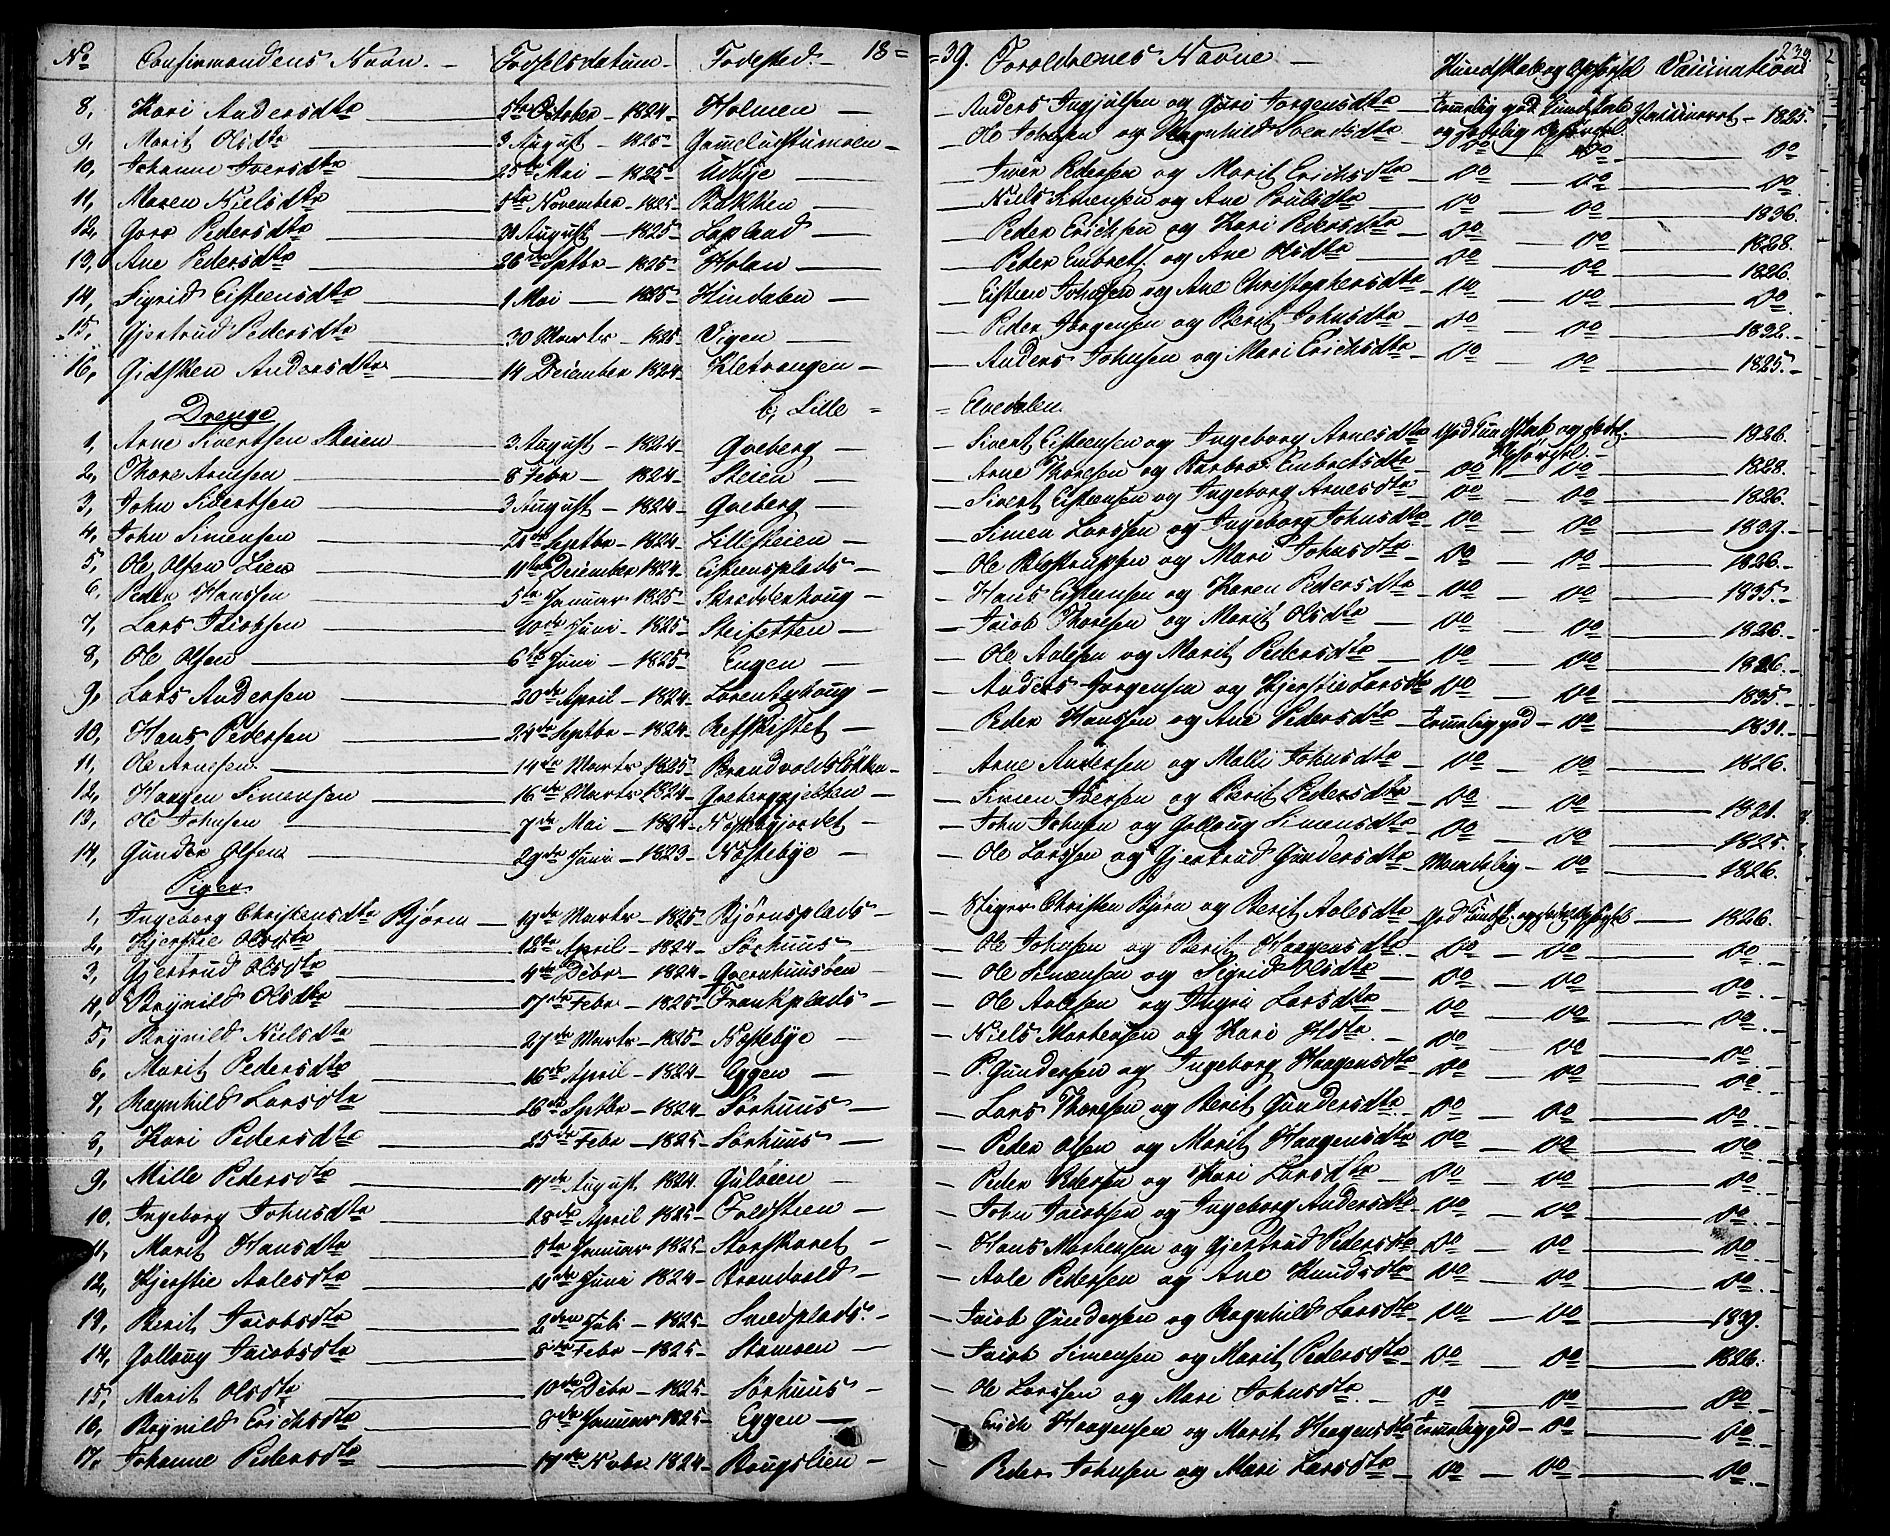 No Confirmandens Navn. Fødselsdatum Fødested. 18= =39. Forældrenes Navne Kundskab og Opførsel Vaccination 239
8, Kari Andersdtr October 1824 Holmen Anders Ingjulsen og Guri Jørgensdtr Vaccineret 1825
9, Marit Olsdtr 3 August 1825 Ole Johnsen og Ragnhild Svendsdtr Do Do Do
10, Johanne Iversdtr 25de Mai 1825 Udbye Iver Pedersen og Marit Erichsdtr Do Do Do
11, Maren Nielsdtr November 1825 Bakken Niels Simensen og Ane Poulsdtr Do Do 1836.
12, Goro Pedersdtr August 1825 Lapland Peder Erichsen og Kari Pedersdtr Do Do 1828.
13, Ane Pedersdtr 26de Septbr 1825 Holen Peder Embrets. og Ane Olsdtr Do Do 1826
14, Sigrid Eistensdtr 1 Mai 1825 Hindalen Eisten Johnsen og Ane Christophersdtr Do Do Do
15, Gjertrud Pedersdtr 30 Marts 1825 Vigen Peder Jørgensen og Berit Johnsdtr Do Do 1832.
16, Gidsken Andersdtr 14 December 1824 Kletrangen Anders Johnsen og Mari Erichsdtr Do Do 1825.
Drenge b, Lille = = Elvedalen
1, Arne Sivertsen Steien 3 August 1824 Qveberg Sivert Eistensen og Ingeborg Arnesdtr God Kundskab og godt Opførsel 1826.
2, Thore Arnesen 8 Febr 1824 Steien Arne Thoresen og Barbro Embretsdtr Do Do 1828.
3, John Sivertsen 3 August 1824 Qveberg Sivert Eistensen og Ingeborg Arnesdtr Do Do 1826.
4, John Simensen Septbr 1824 Lillesteien Simen Larssen og Ingeborg Johnsdtr Do Do 1839.
5, Ole Olsen Lien 11te December 1824 Eistensplads Ole og Mari Johnsdtr Do Do 1826.
6, Peder Hanssen 5te Januar 1825 Skredderhaug Hans Eistensen og Karen Pedersdtr Do Do 1835.
7, Lars Jacobsen Juni 1825 Steisetten Jacob Thoresen og Marit Olsdtr Do Do 1826.
8, Ole Olsen 6te Juni 1825 Engen Ole Aalesen og Marit Pedersdtr Do Do 1826.
9, Lars Andersen 20de April 1824 Anders Jørgensen og Kjerstie Larsdtr Do Do 1835.
10, Hans Pedersen 24de Septbr 1824 Peder Hanssen og Ane Pedersdtr Temmelig god Do 1831.
11, Ole Arnesen 14de Marts 1825 Brandvoldsløkken Arne Andersen og Malli Johnsdtr Do Do 1826.
12, Haagen Simensen 16de Marts 1824 Simen Iversen og Berit Pedersdtr Do Do
13, Ole Johnsen 7de Mai 1824 Nøstebyjordet John Johnsen og Gollaug Simensdtr Do Do 1825.
14, Gunder Olsen 29de Juni 1823 Nøstebye Ole Larssen og Gjertrud Gundersdtr Maadelig Do 1826.
Piger
1, Ingeborg Christensdtr Bjørn 19de Marts 1825 Bjørnsplads Christen Bjørn og Berit Aalesdtr 1826.
2, Kjerstie Olsdtr 12te April 1824 Sørhuus Ole Johnsen og Berit Haagensdtr Do Do Do
3, Gjertrud Olsdtr 4de Debr 1824 Qvernhuusøen Ole Simensen og Sigrid Olsdtr Do Do Do
4, Brynild Olsdtr 17de Febr 1825 Frankplads Ole Aalesen og Ingri Larsdtr Do Do Do
5, Brynild Nielsdtr 27de Marts 1825 Nøstebye Niels Mortensen og Kari Do Do Do
6, Marit Pedersdtr 16de April 1824 Eggen P. Gundersen og Ingeborg Haagensdtr Do Do Do
7, Ragnhild Larsdtr 26de Septbr 1824 Sørhuus Lars Thoresen og Berit Gundersdtr Do Do Do
8, Kari Pedersdtr 25de Febr 1825 Sørhuus Peder Olsen og Marit Haagensdtr Do Do Do
9, Mille Pedersdtr August 1824 Guløien Peder Pedersen og Mari Larsdtr Do Do Do
10. Ingeborg Johnsdtr 28de April 1825 Foldstien John Jacobsen og Ingeborg Andersdtr Do Do Do
11, Marit Hansdtr Januar 1825 Storskaret Hans Mortensen og Gjertrud Pedersdtr Do Do Do
12, Kjerstie Aalesdtr Juni 1824 Brandvold Aale Pedersen og Ane Knudsdtr Do Do Do
13, Berit Jacobsdtr 2den Juli 1825 Jacob Gundersen og Ragnhild Larsdtr Do Do 1839.
14, Gollaug Jacobsdtr 8de Febr 1825 Stamoen Jacob Simensen og Marit Pedersdtr Do Do 1826.
15, Marit Olsdtr 10de Debr 1825 Sørhuus Ole Larssen og Mari Johnsdtr Do Do Do
16, Brynild Erichsdtr 8de Januar 1825 Eggen Erich Haagensen og Marit Haagensdtr Temmelig god Do Do
17. Johanne Pedersdtr 17de Nvbr 1824 Baugslien Peder Johnsen og Mari Larsdtr Do Do Do